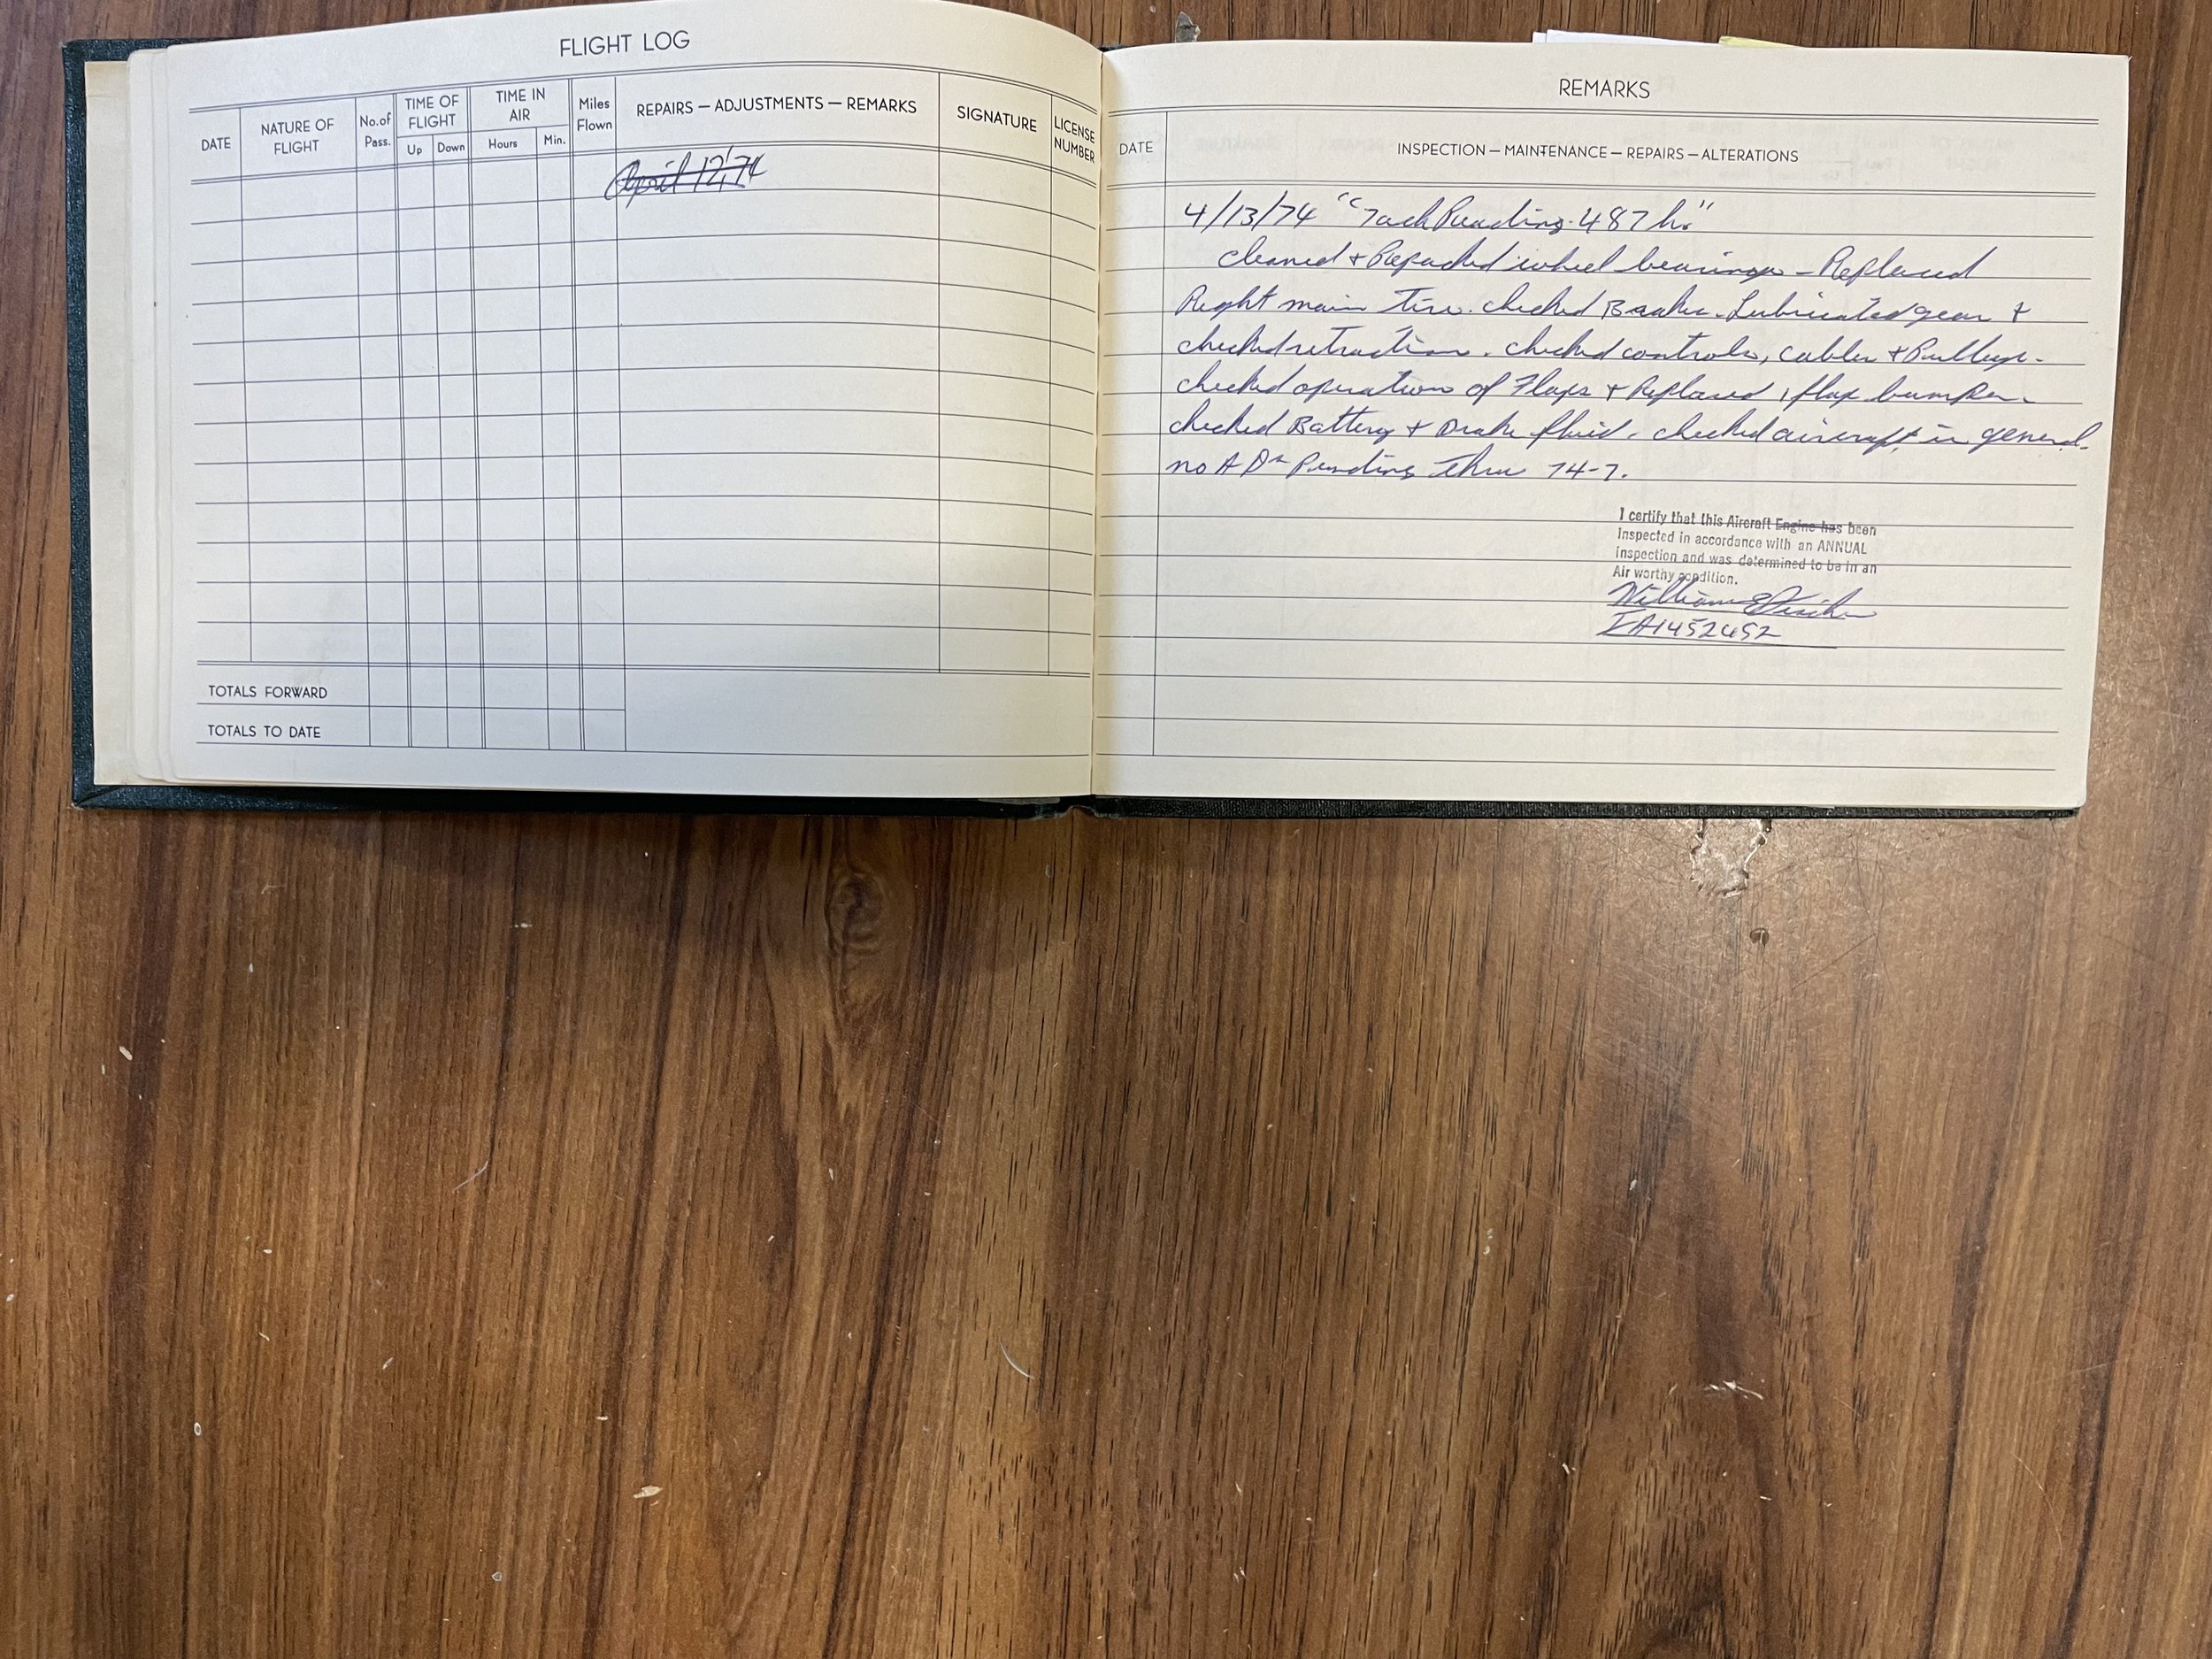 FLIGHT LOG
DATE
NATURE OF FLIGHT
No.of Pass.
TIME OF FLIGHT
Up
Down
TIME IN AIR
Hours
Min.
Miles Flown
REPAIRS — ADJUSTMENTS — REMARKS
SIGNATURE
LICENSE NUMBER
April 12, '74
TOTALS FORWARD
TOTALS TO DATE
REMARKS
DATE
INSPECTION — MAINTENANCE — REPAIRS — ALTERATIONS
4/13/74 "Tach Reading - 487 hr"
cleaned + Repacked wheel bearings - Replaced
Right main Tire. checked Brakes. Lubricated gear +
checked retraction. checked controls, cables + Pulleys.
checked operation of Flaps + Replaced 1 flap bumper.
checked Battery + Brake fluid. checked aircraft in general.
no A Ds Pending thru 74-7.
I certify that this Aircraft Engine has been
Inspected in accordance with an ANNUAL
inspection and was determined to be in an
Air worthy condition.
William E
IA1452452